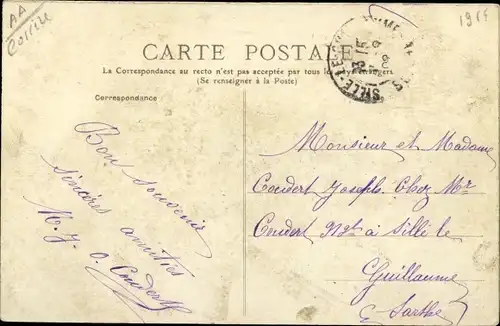 AA
Corrèze
1915
CARTE POSTALE
La Correspondance au recto n'est pas acceptée par tous les pays étrangers.
(Se renseigner à la Poste)
SILLÉ-LE-
Correspondance
Bon souvenir
sincères amitiés
M. J.
Coudert
Monsieur et Madame
Coudert Joseph. Chez Mr
Coudert à Sillé le
Guillaume
Sarthe